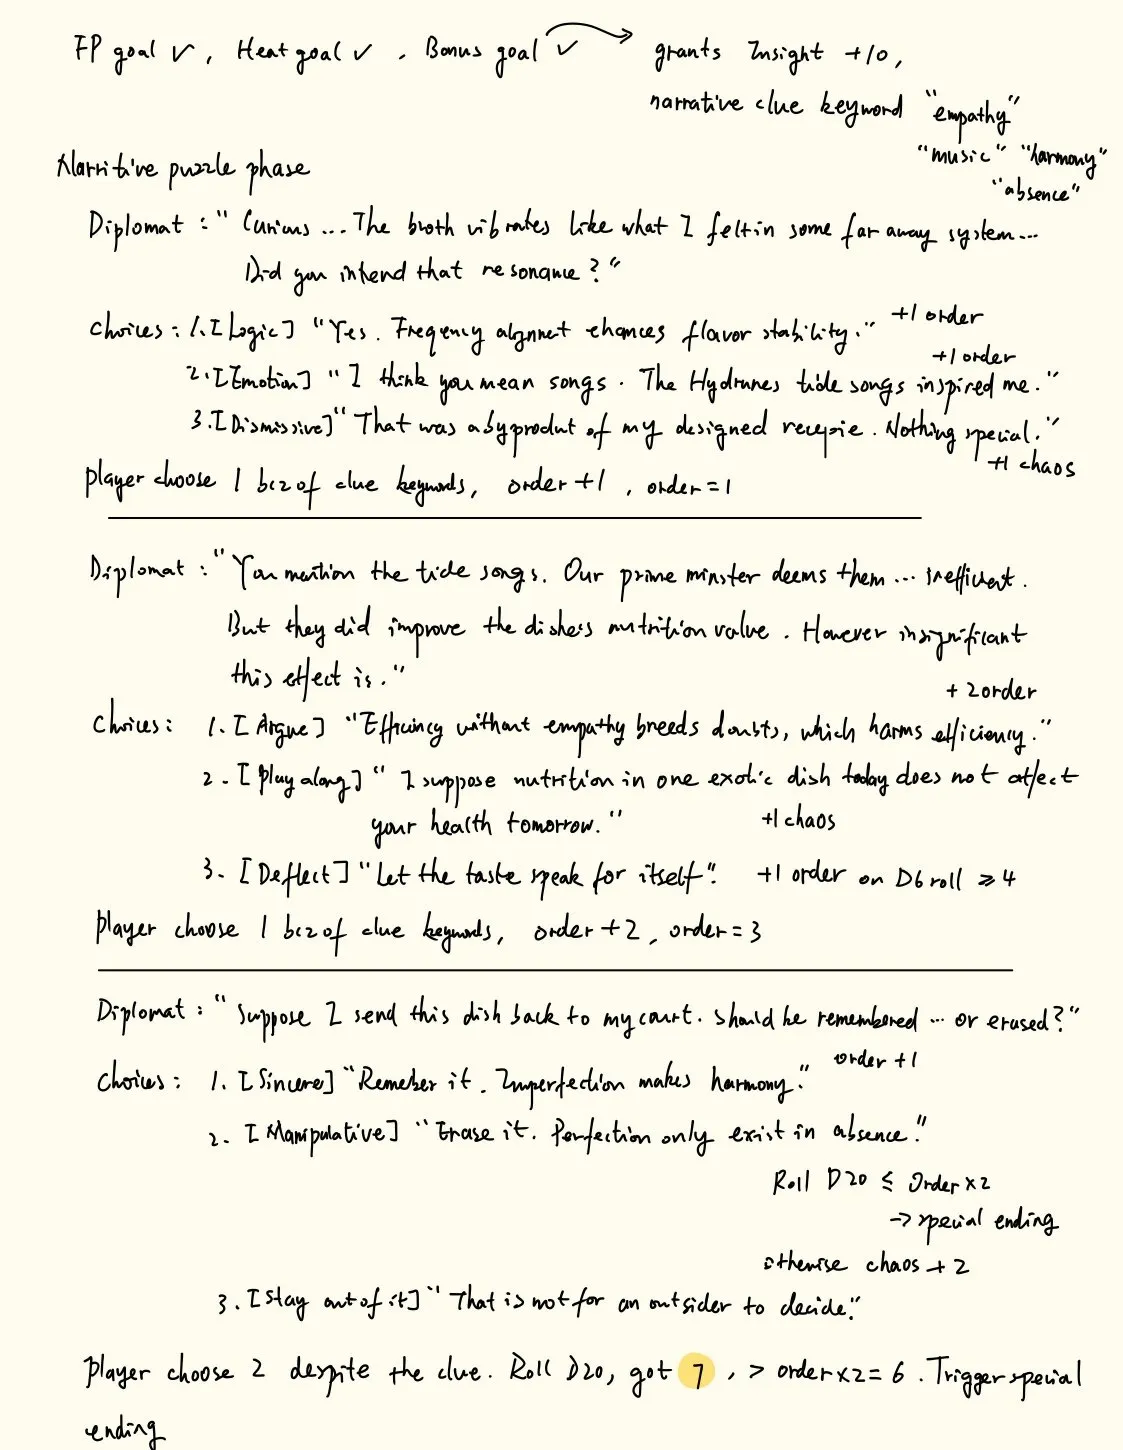 FP goal ✓, Heat goal ✓, Bonus goal ✓ → grants Insight +10,
narrative clue keyword "empathy"
"music" "harmony"
"absence"
Narritive puzzle phase
Diplomat: "Curious ... The broth vibrates like what I felt in some far away system...
Did you intend that resonance?"
+1 order
Choices: 1. [Logic] "Yes. Freqency alignmet ehances flavor stability."
+1 order
2. [Emotion] "I think you mean songs. The Hydrunes tide songs inspired me."
3. [Dismissive] "That was a byprodut of my designed recepie. Nothing special."
+1 chaos
player choose 1 bcz of clue keywords, order +1, order = 1
Diplomat: "You mention the tide songs. Our prime minster deems them ... inefficient.
But they did improve the dishess nutrition value. However insignificant
this effect is."
+2 order
Choices: 1. [Argue] "Efficincy without empathy breeds doubts, which harms efficiency."
2. [Play along] "I suppose nutrition in one exotic dish today does not affect
your health tomorrow." +1 chaos
3. [Deflect] "Let the taste speak for itself". +1 order on D6 roll ≥ 4
player choose 1 bcz of clue keywords, order +2, order = 3
Diplomat: "Suppose I send this dish back to my court. Should he remembered ... or erased?"
order +1
Choices: 1. [Sincere] "Remeber it. Imperfection makes harmony."
2. [Manipulative] "Erase it. Perfection only exist in absence."
Roll D20 ≤ Order×2
→ special ending
otherwise chaos +2
3. [Stay out of it] "That is not for an outsider to decide."
player choose 2 despite the clue. Roll D20, got 7, > order×2 = 6. Trigger special
ending